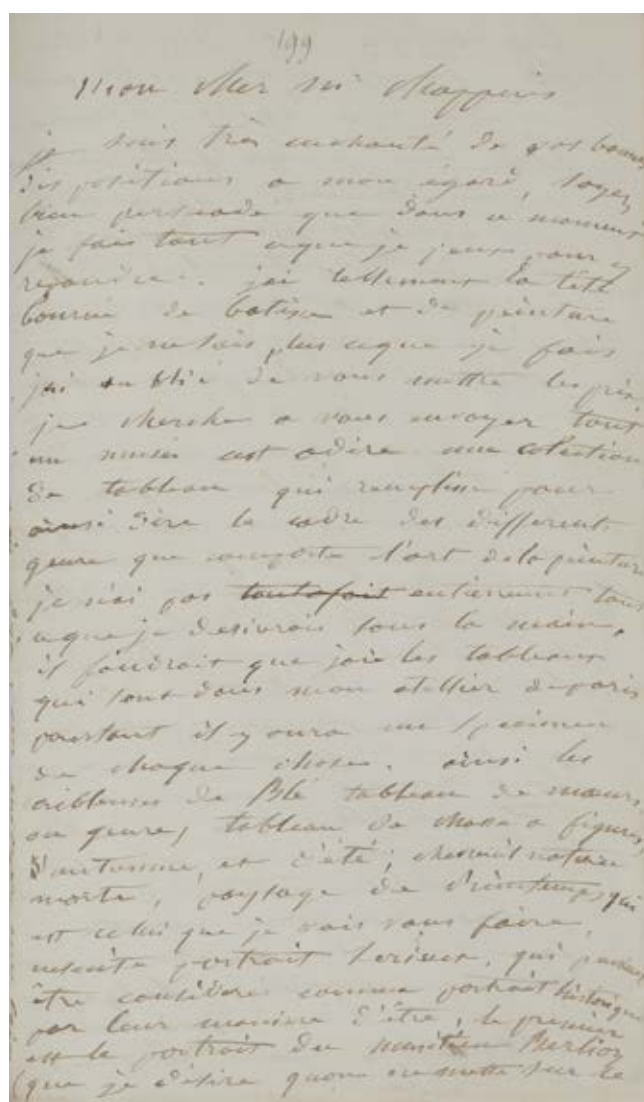 199
Mon cher Mr Chappuis
je suis très enchanté de vos bonnes
dispositions a mon égard, soyez
bien persuadé que dans ce moment
je fais tout ceque je peux pour y
repondre. jai tellement la tête
bourrée de batisse et de peinture
que je ne sais plus ceque je fais
jai oublié de vous mettre les prix.
je cherche a vous envoyer tout
un musée cest adire une colection
de tableau qui remplisse pour
ainsi dire le cadre des different
genre que comporte l'art de la peinture
je n'ai pas toutafait entièrement tous
ceque je desirerais sous la main,
il faudrait que jaie les tableaux
qui sont dans mon atellier de paris
pourtant il y aura un specimen
de chaque chose. ainsi les
cribleuses de Blé tableau de mœurs
ou genre, tableau de chasse a figures,
d'automne, et d'été, chevreuil nature
morte, paysage de printemps qui
est celui que je vais vous faire,
ensuite portrait serieux, qui peuvent
être consideré comme portrait historique
par leur maniere d'être, le premier
est le portrait du musitien Berlioz
(que je désire quon me mette sur le